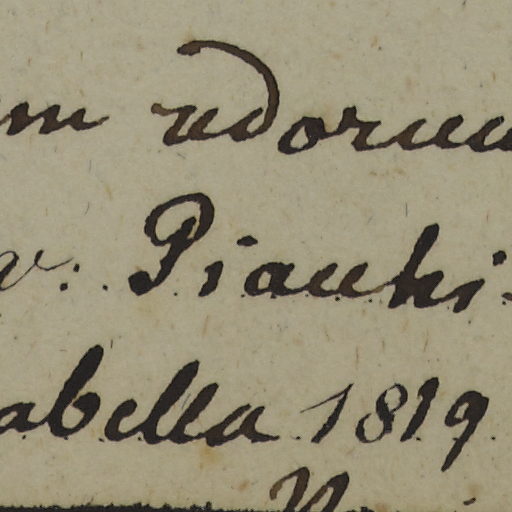 m udoru
v. Piauhi
abella 1819